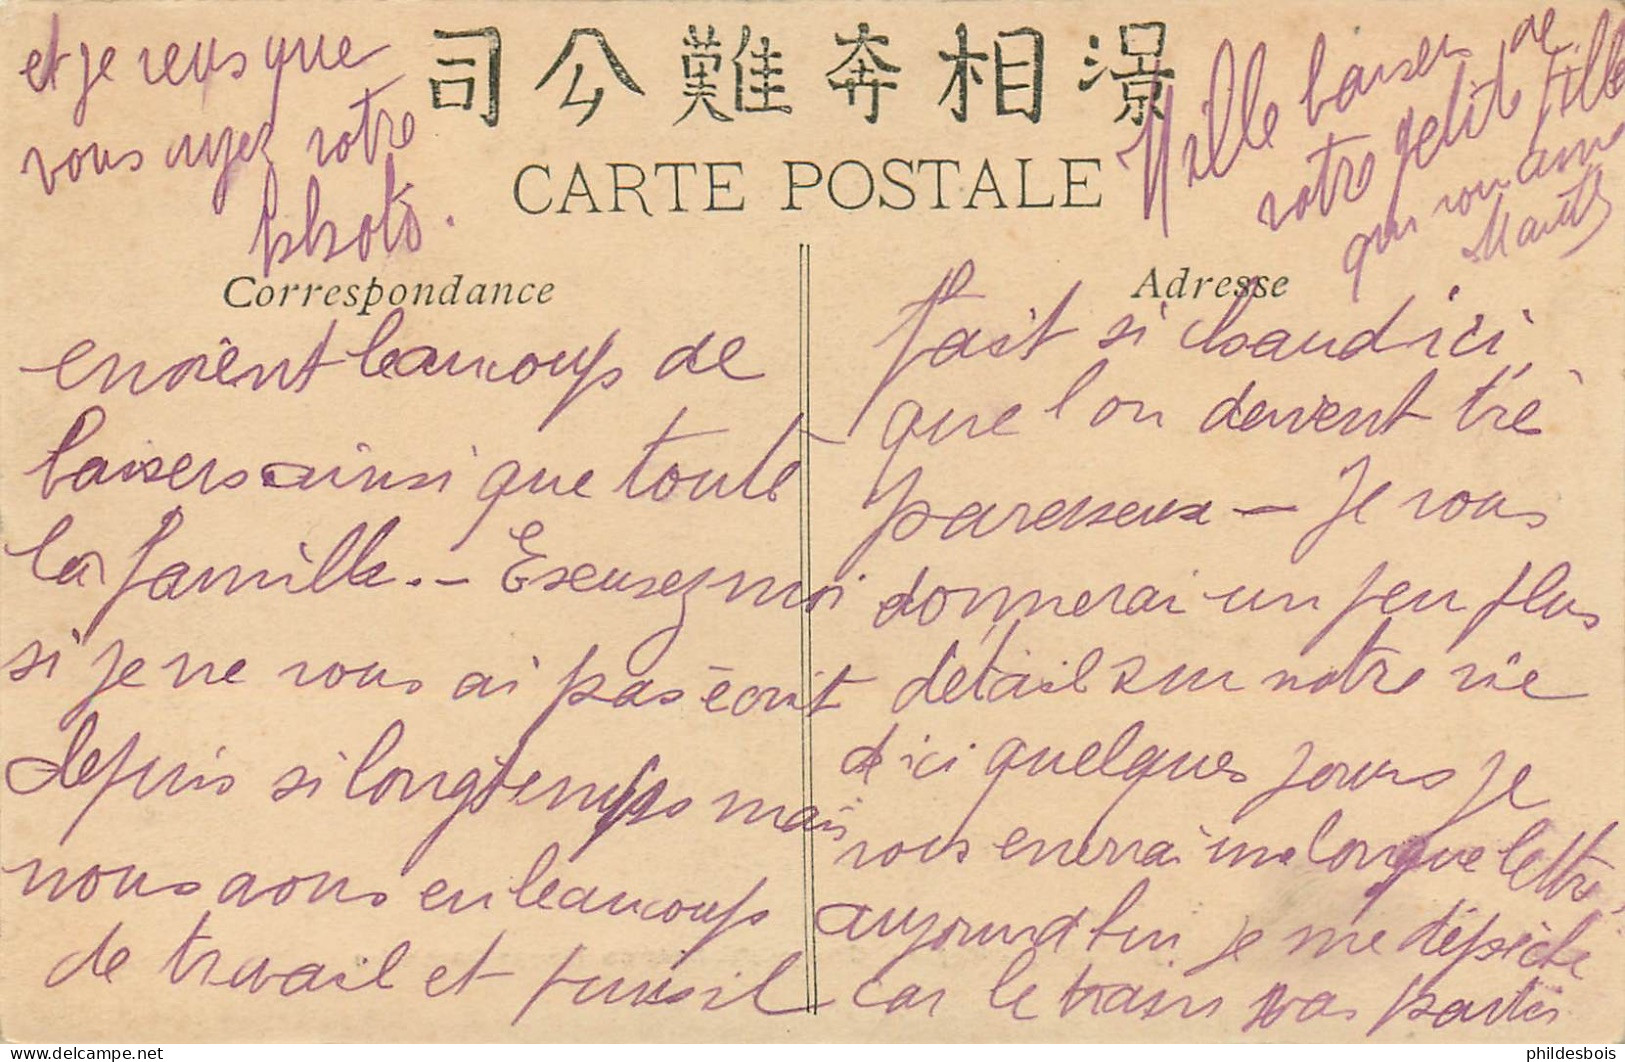 司公難奔相㬌
CARTE POSTALE
Correspondance
Adresse
enoient beaucoup de
baisers ainsi que toute
la famille. — Excusez moi
si je ne vous ai pas écrit
depuis si longtemps mais
nous avons eu beaucoup
de travail et puis il
fait si chaud ici,
que l'on devient trè
paresseux — Je vous
donnerai un peu plus
detail sur notre vie
d'ici quelques jours je
vous enverrai une longue lettre,
aujourd'hui je me dépèche
car le train vas partir
et je veus que
vous ayez votre
photo.
Mille baisers de
votre petite fille
qui vous aime